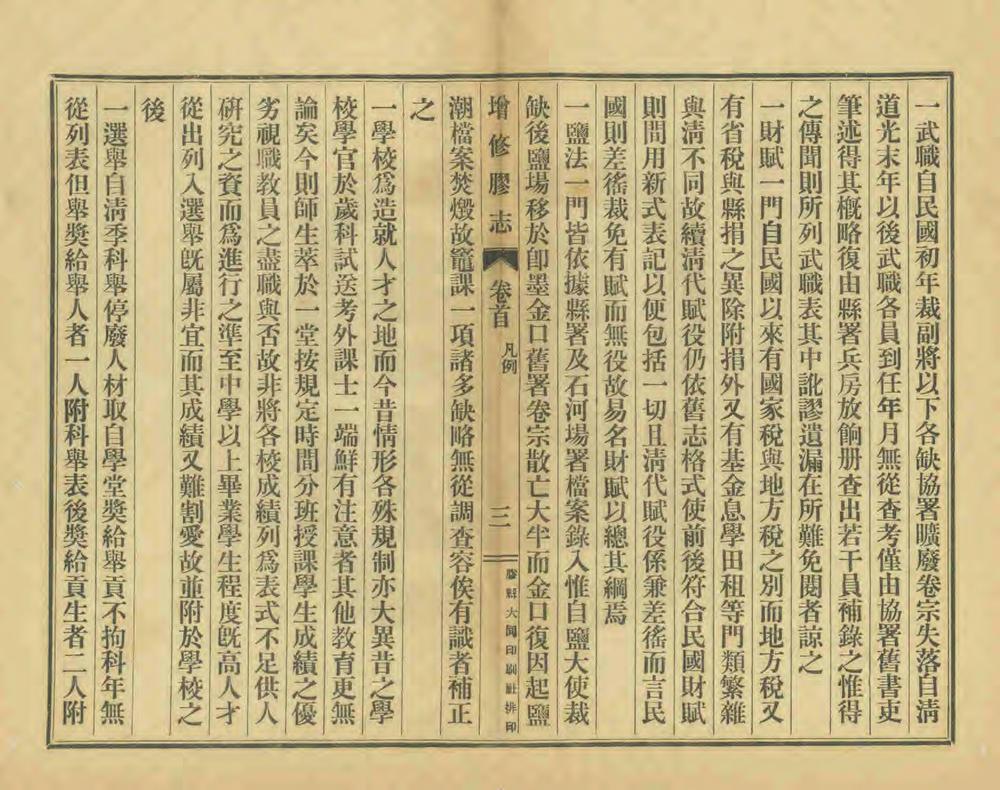 一武職自民國初年裁副將以下各缺協署曠廢卷宗失落自清
道光末年以後武職各員到任年月無從查考僅由協署舊書吏
筆述得其概略復由縣署兵房放餉册查出若干員補錄之惟得
之傳聞則所列武職表其中訛謬遺漏在所難免閱者諒之
一財賦一門自民國以來有國家稅與地方稅之別而地方稅又
有省稅與縣捐之異除附捐外又有基金息學田租等門類繁雜
與清不同故續清代賦役仍依舊志格式使前後符合民國財賦
則間用新式表記以便包括一切且清代賦役係兼差徭而言民
國則差徭裁免有賦而無役故易名財賦以總其綱焉
一鹽法一門皆依據縣署及石河場署檔案錄入惟自鹽大使裁
缺後鹽場移於卽墨金口舊署卷宗散亡大半而金口復因起鹽
潮檔案焚燬故竈課一項諸多缺略無從調查容俟有識者補正
之
一學校爲造就人才之地而今昔情形各殊規制亦大異昔之學
校學官於歲科試送考外課士一端鮮有注意者其他教育更無
論矣今則師生萃於一堂按規定時間分班授課學生成績之優
劣視職教員之盡職與否故非將各校成績列爲表式不足供人
研究之資而爲進行之準至中學以上畢業學生程度旣高人才
從出列入選舉旣屬非宜而其成績又難割愛故並附於學校之
後
一選舉自清季科舉停廢人材取自學堂獎給舉貢不拘科年無
從列表但舉獎給舉人者一人附科舉表後獎給貢生者二人附
增修膠志 卷首 凡例 三 膠縣大同印刷社排印